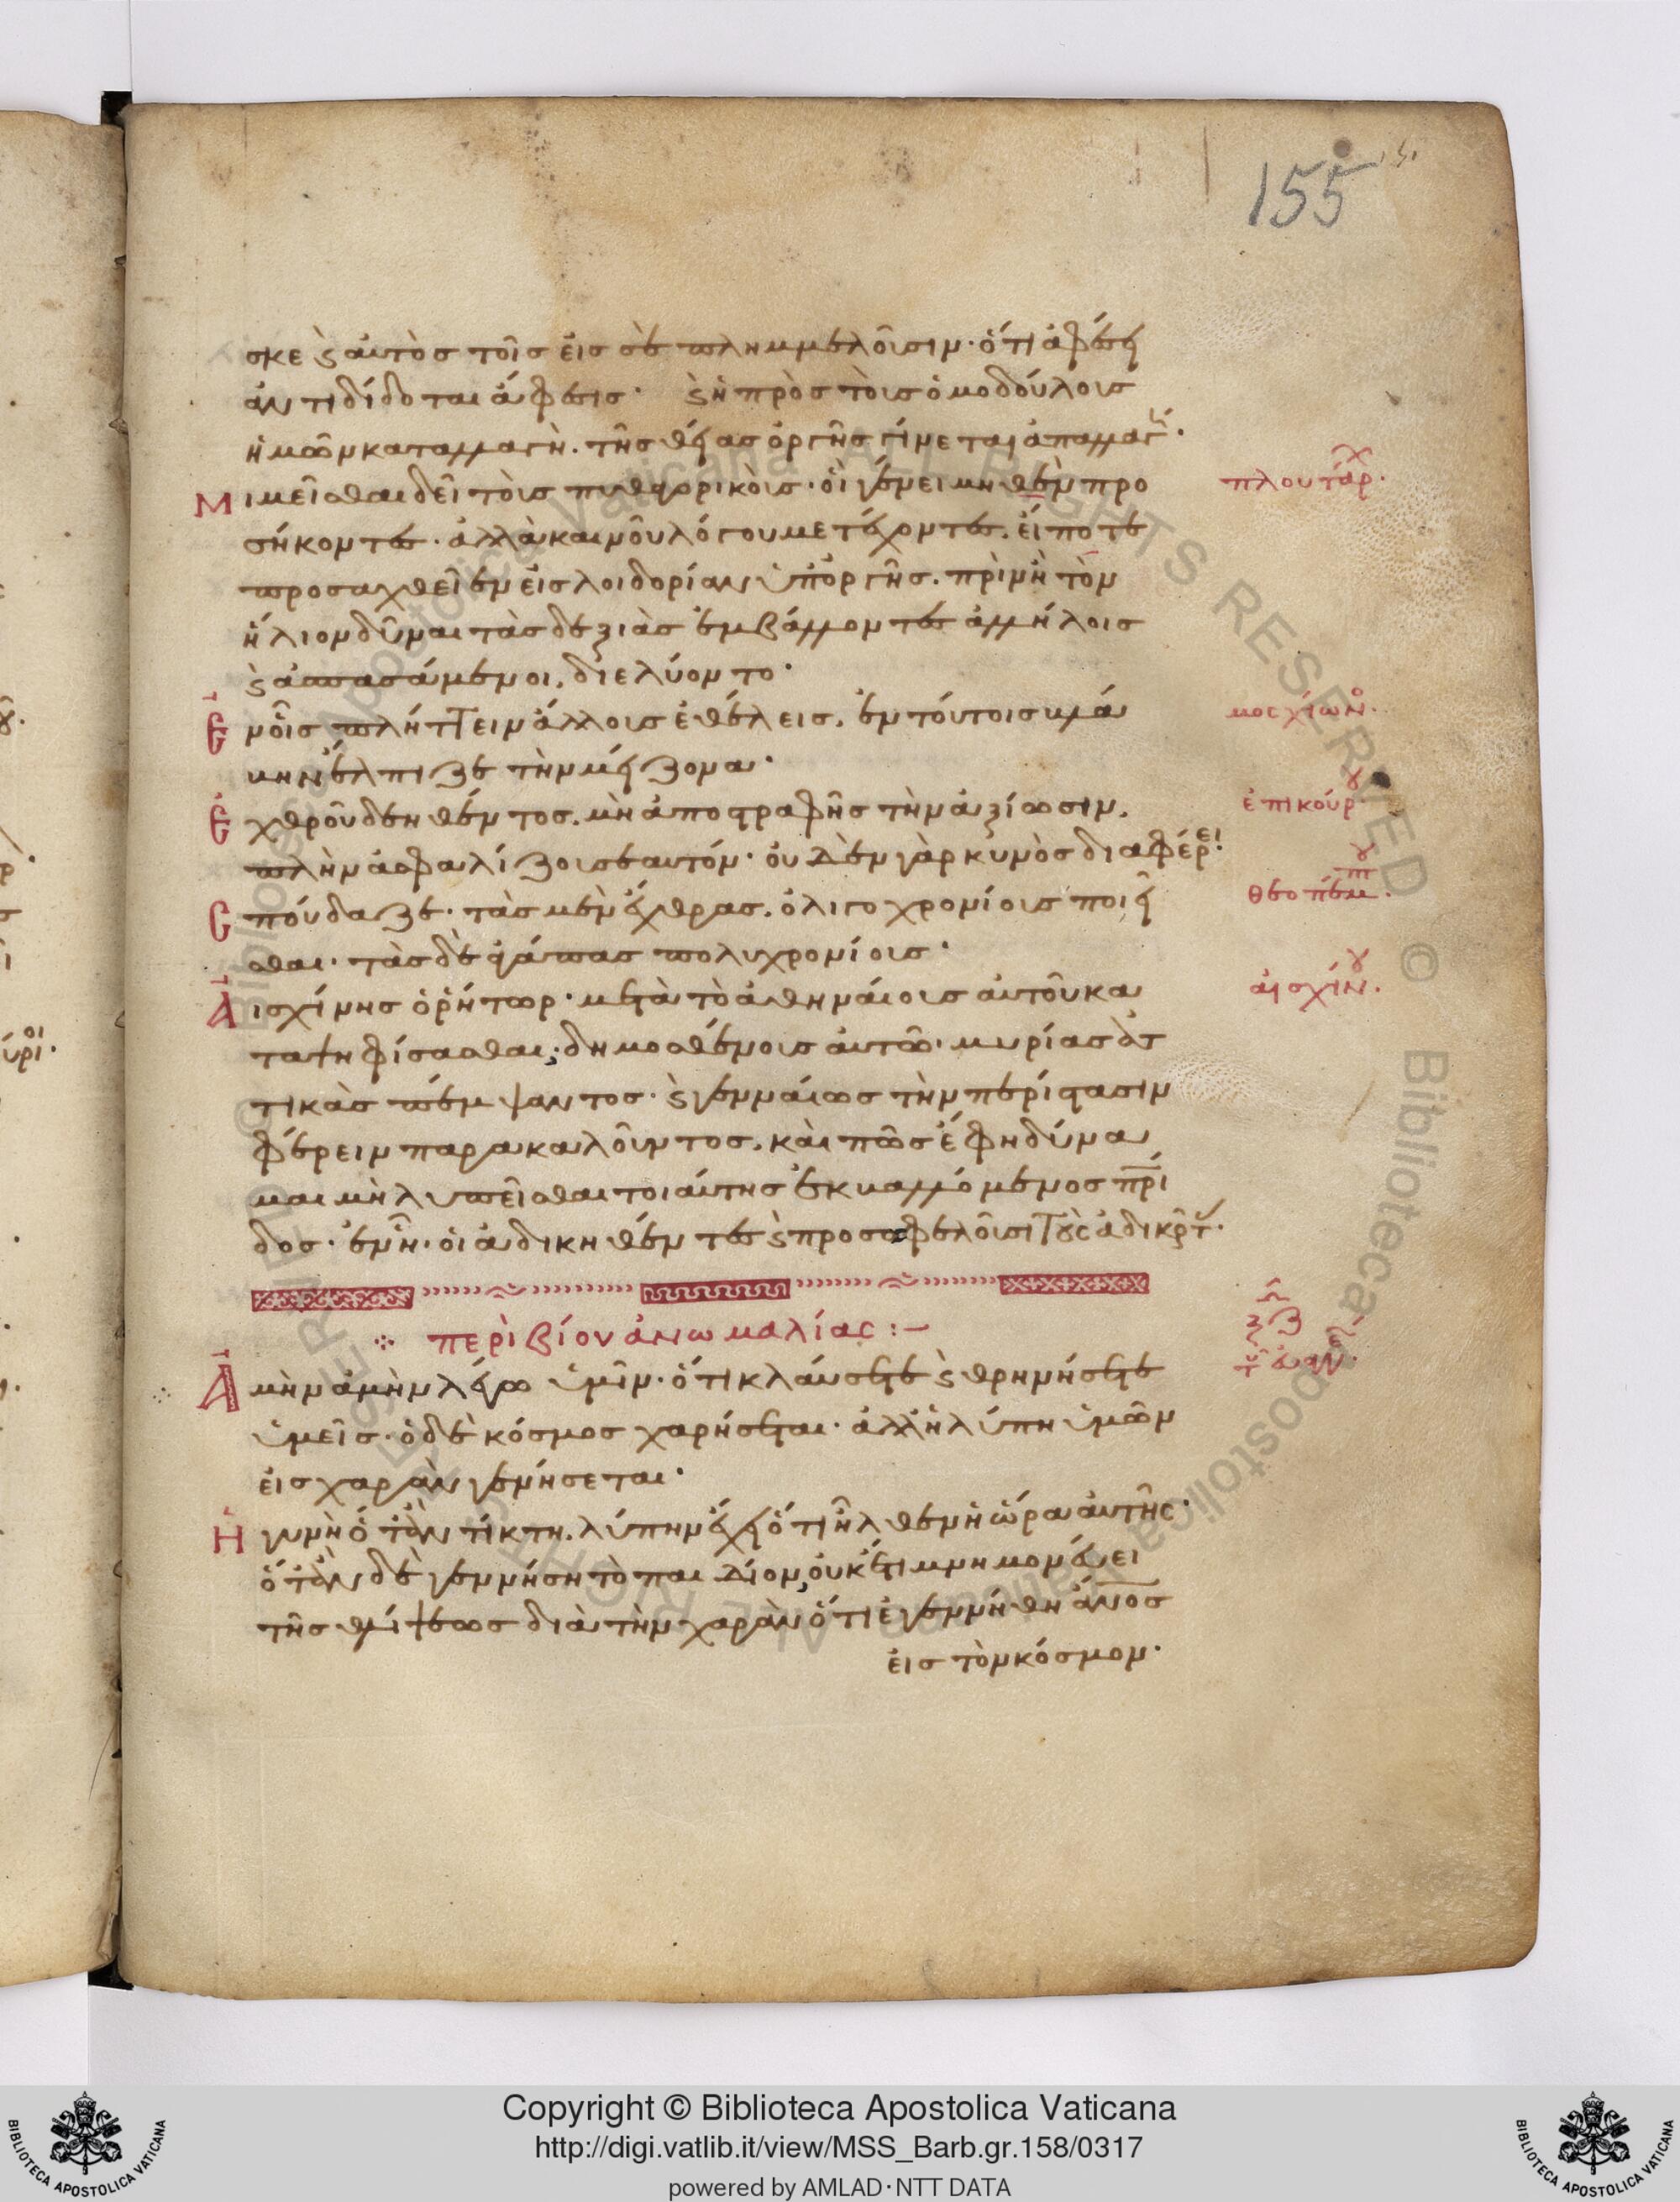 155
σκε ϛ αὐτὸσ τοῖσ εἰσ σὲ πλημμελοῦσιν· ὅτι ἀφέσει
ἀντιδίδοται ἄφεσισ· ϛ ἡ πρὸσ τοὺσ ὁμοδούλουσ
ἡμῶν καταλλαγὴ. τῆσ θείασ ὀργῆσ γίνεται ἀπαλλαγή·
Μιμεῖσθαι δεῖ τοὺσ πυθαγορικοὺσ· οἳ γένει μηθὲν προ
πλουτάρχ·
σήκοντεσ· ἀλλὰ κοινοῦ λόγου μετέχοντεσ. εἴ ποτε
προσαχθεῖεν εἰσ λοιδορίαν ὑπ' ὀργῆσ. πρὶν ἢ τὸν
ἥλιον δῦναι τὰσ δεξιὰσ ἐμβάλλοντεσ ἀλλήλοισ
ϛ ἀσπασάμενοι, διελύοντο·
Ἐν οἷσ πλήττειν ἄλλουσ ἐθέλεισ. ἐν τούτοισ ἀνά
μοσχίων·
μενε ἔλπιζε τὴν μείζονα·
Ἐχθροῦ δεηθέντοσ. μὴ ἀποστραφῆσ τὴν ἀξίωσιν.
ἐπικούρου·
πλὴν ἀσφαλίζου σεαυτόν· οὐδὲν γὰρ κυνὸσ διαφέρει·
Σπούδαζε· τὰσ μὲν ἔχθρασ. ὀλιγοχρονίουσ ποιεῖ
θεοπέμπτου·
σθαι· τὰσ δὲ ἀγάπασ πολυχρονίουσ·
Αἰσχίνησ ὁ ῥήτωρ· μετὰ τὸ ἀθηναίουσ αὐτοῦ κα
αἰσχίνου·
ταψηφίσασθαι· δημοσθένουσ αὐτῶ· μυρίασ ἀτ
τικὰσ πέμψαντοσ· ϛ γενναίωσ τὴν περίστασιν
φέρειν παρακαλοῦντοσ. καὶ πῶσ ἔφη δύνα
μαι μὴ λυπεῖσθαι τοιαύτησ ἐκβαλλόμενοσ πρί
δοσ· ἐν ἧ· οἱ ἀδικηθέντεσ ϛ προσωφελοῦσι τοὺσ ἀδικοῦντ·
περὶ βίου ἀνωμαλίας :—
Ἀμὴν ἀμὴν λέγω ὑμῖν· ὅτι κλαύσετε ϛ θρηνήσετε
ὑμεῖσ· ὁ δὲ κόσμοσ χαρήσεται· ἀλλ' ἡ λύπη ὑμῶν
εἰσ χαρὰν γενήσεται·
Ἡ γυνὴ ὅταν τίκτη. λύπην ἔχει ὅτι ἦλθεν ἡ ὥρα αὐτῆς·
ὅταν δὲ γεννήση τὸ παιδίον, οὐκέτι μνημονεύει
τῆσ θλίψεωσ διὰ τὴν χαρὰν ὅτι ἐγεννήθη ἄνοσ
εἰσ τὸν κόσμον·
Copyright © Biblioteca Apostolica Vaticana
http://digi.vatlib.it/view/MSS_Barb.gr.158/0317
powered by AMLAD·NTT DATA